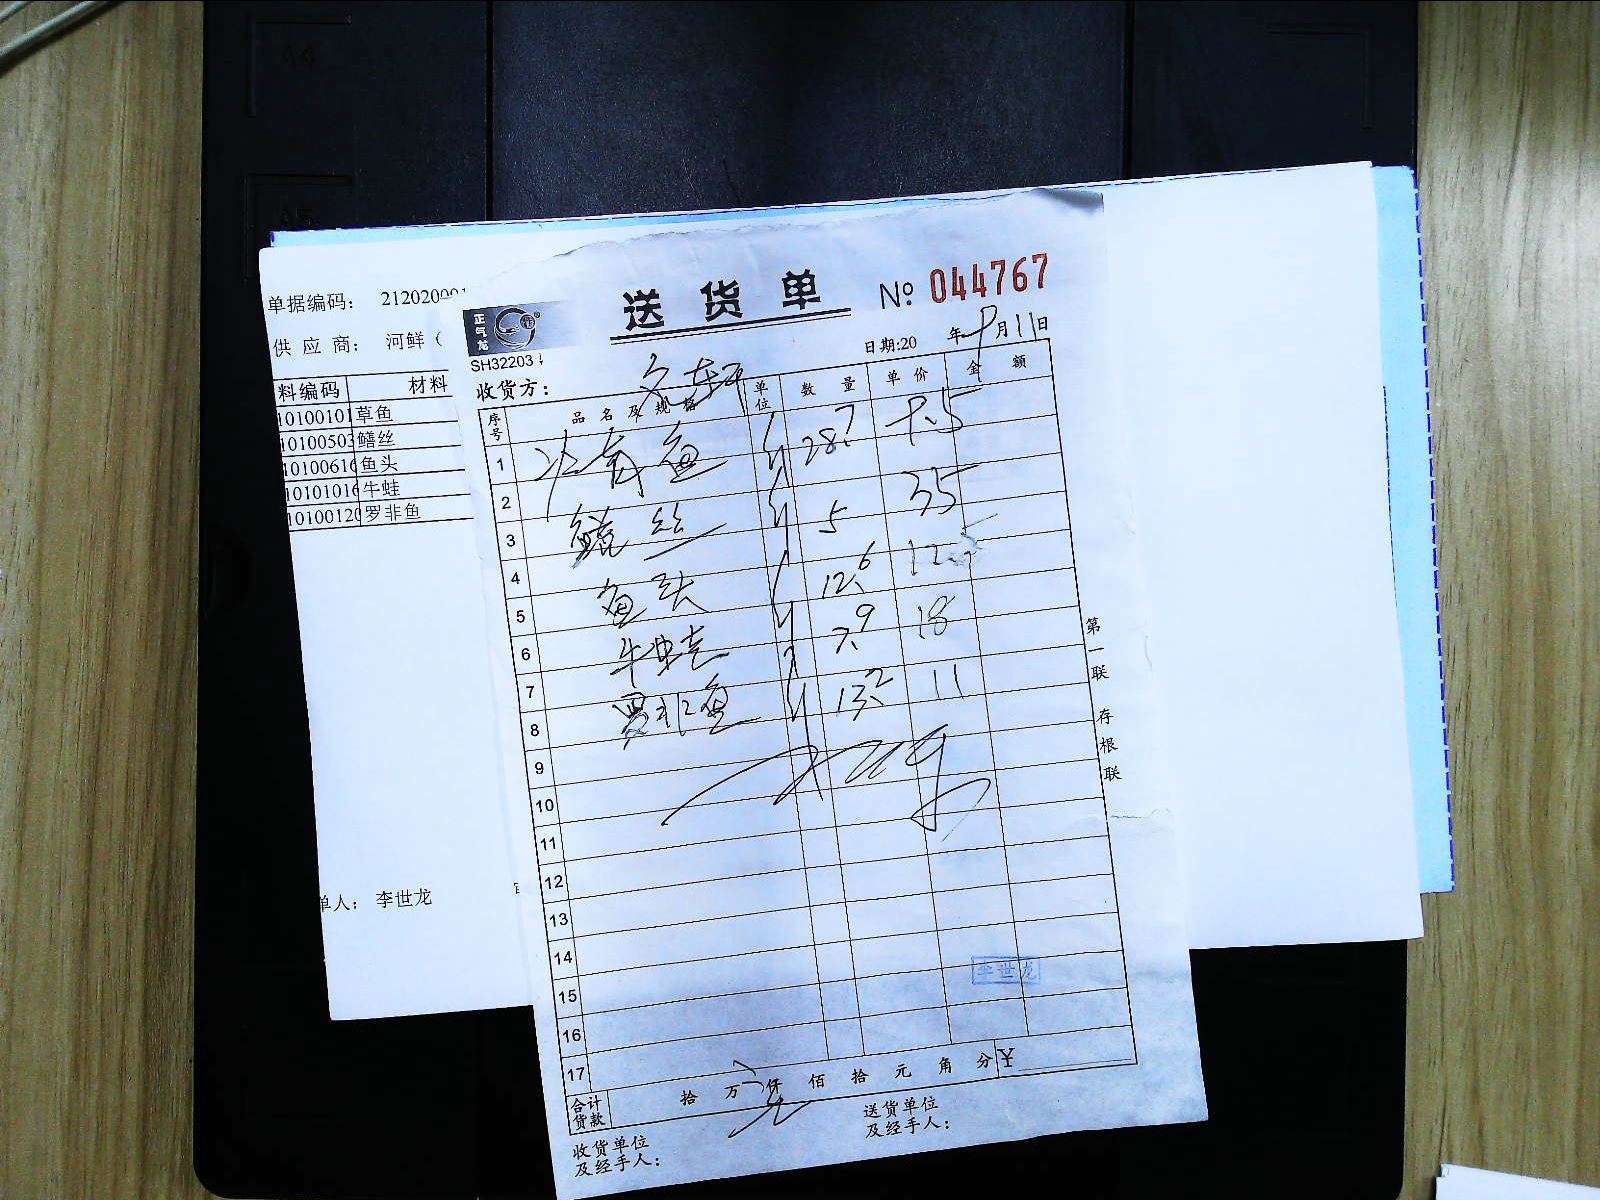 A4
A5
单据编码： 212020001
供 应 商： 河鲜（
料编码 材料
10100101 草鱼
10100503 鳝丝
10100616 鱼头
10101016 牛蛙
10100120 罗非鱼
单人： 李世龙
送货单 № 044767
正气龙
SH32203
日期:20 年 9月11日
收货方：
序号 品名及规格 单位 数量 单价 金额
1 鱼 斤 28.7 9.5
2
3 鳝丝 斤 5 35
4
5 鱼头 斤 12.6 12.5
6 牛蛙 斤 7.9 18
7
8 罗非鱼 斤 13.2 11
9
10
11
12
13
14
15
16
17
李世龙
合计货款 拾 万 仟 佰 拾 元 角 分 ¥
收货单位及经手人：
送货单位及经手人：
第一联 存根联